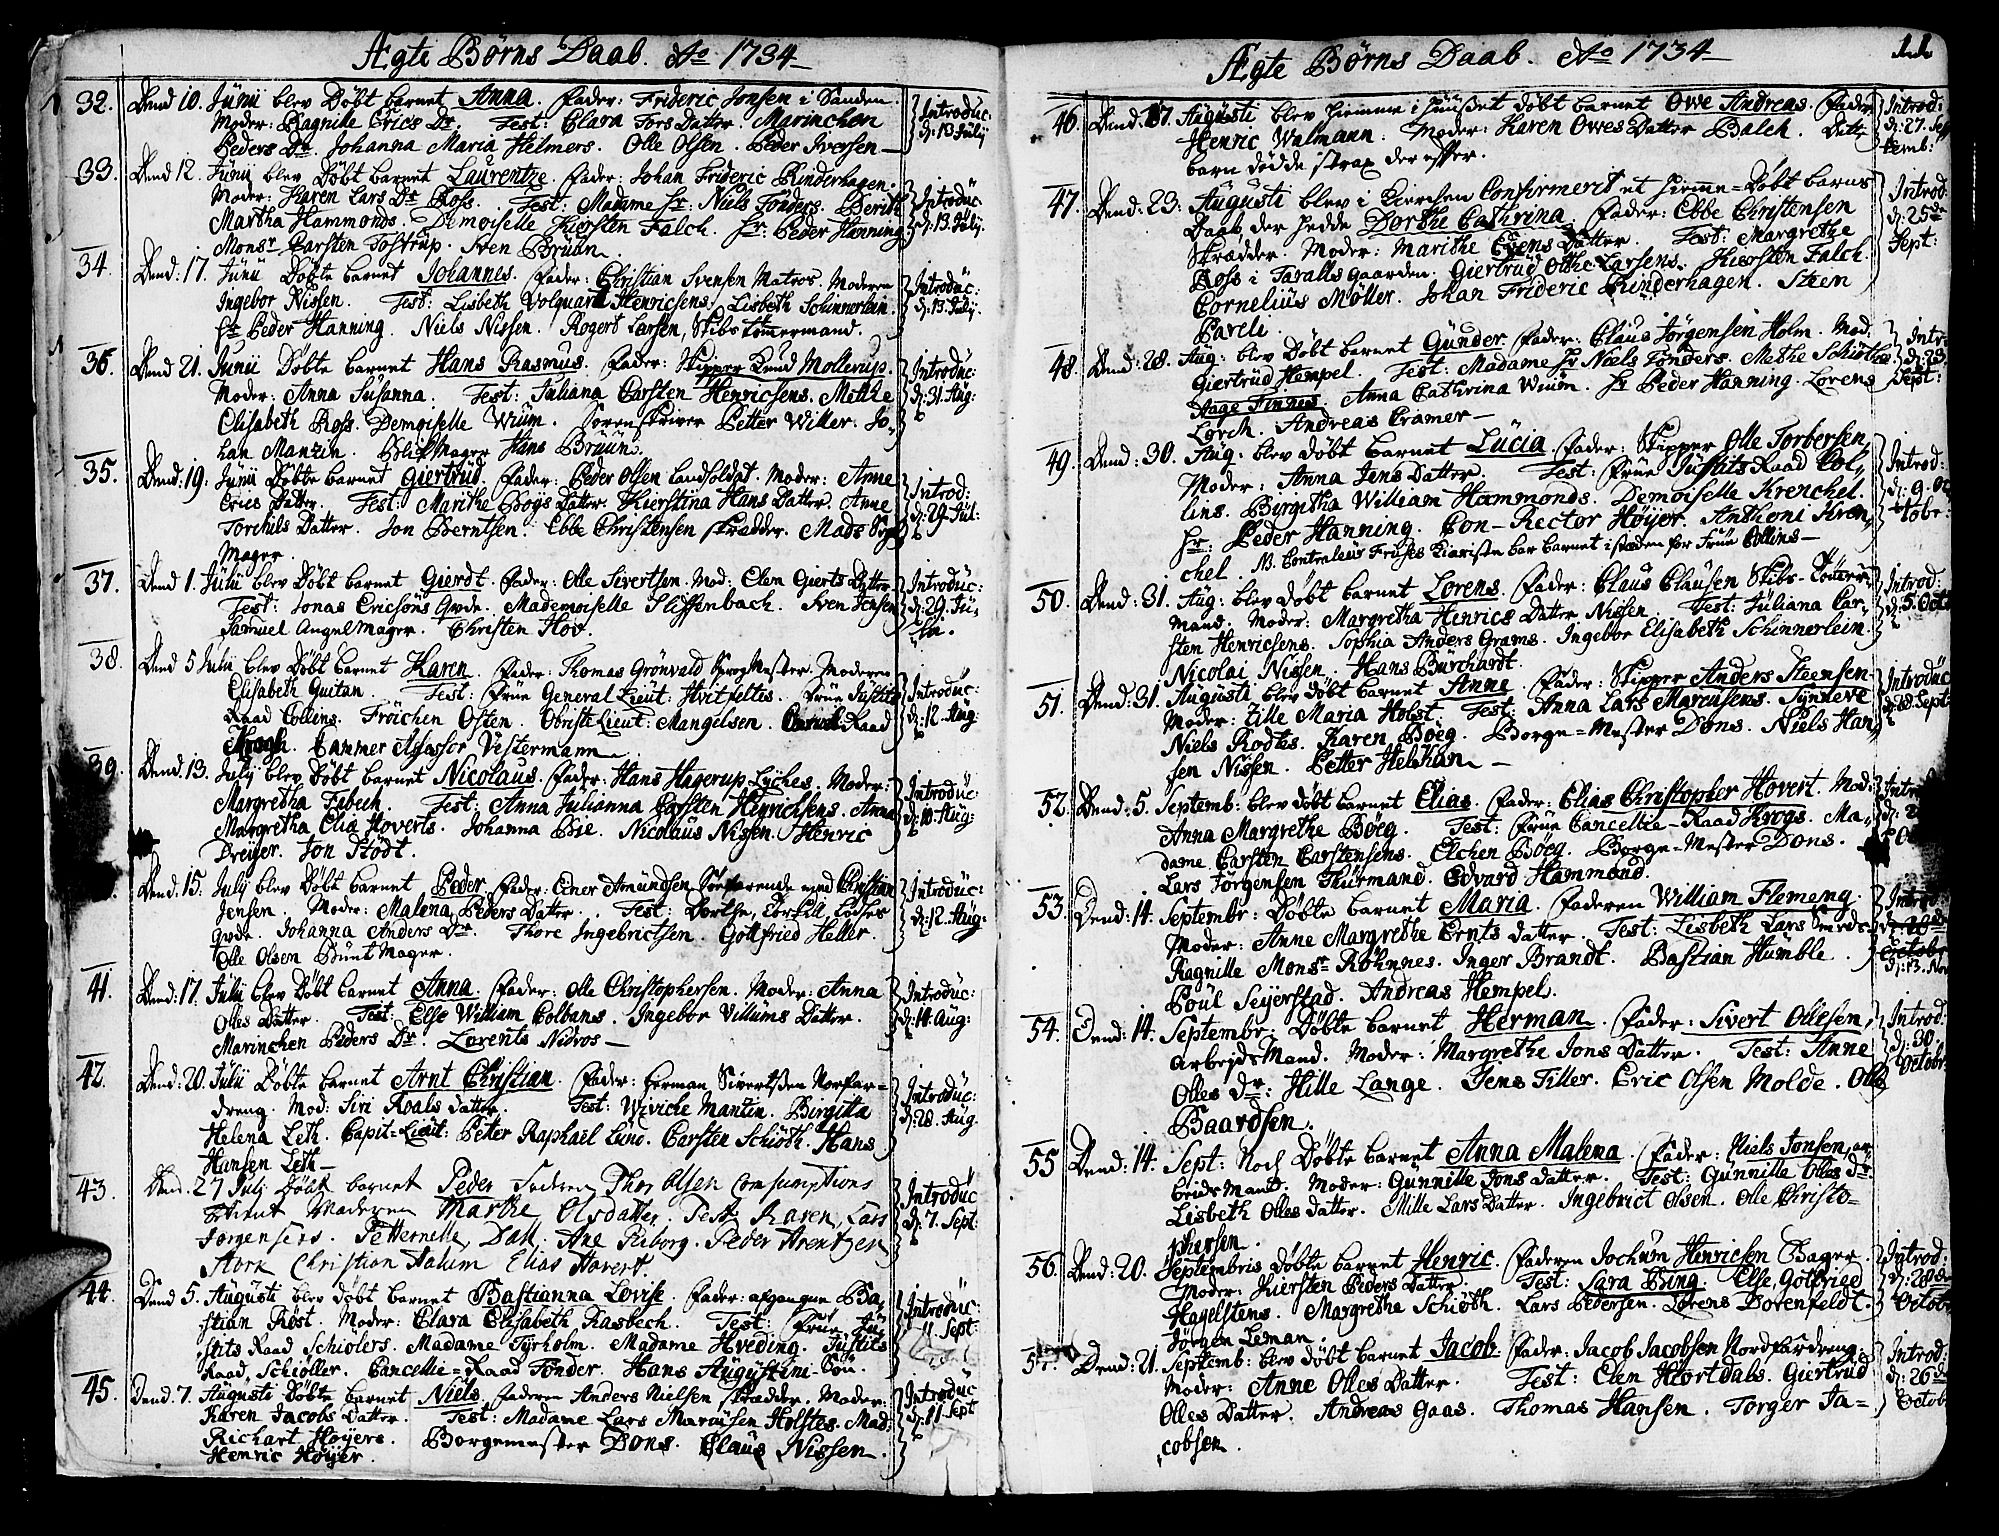 Ægte Børns Daab. Ao 1734
32. Dend 10. Junii blev Døbt barnet Anna. Fader: Frideric Jonsen i Sanden
Moder: Ragnille Erics Dr. Test: Clara Tors Datter. Marinchen
Peders Dr. Johanna Maria Helmers. Olle Olsen. Peder Iversen
Introduc: d: 13 July
33. Dend 12. Junii blev Døbt barnet Laurentze. Fader: Johan Frideric Rinderhagen.
Moder: Karen Lars Dr Ross. Test: Madame Hr: Niels Tønders. Berith
Martha Hammonds. Demoiselle Kiersten Falch. Hr: Peder Hanning
Monsr Carsten Tostrup. Sven Bruun.
Introduc: d: 13. July.
34. Dend: 17. Junii Døbte barnet Johannes. Fader: Christian Svensen Matros. Moderen
Ingebor Nissen. Test: Lisbeth Volquard Henricsens. Lisbeth Schinnerlein.
Hr Peder Hanning. Niels Nissen. Rogert Larsen, Skibs tømmermand.
Introduc: d: 13. July.
36. Dend 21. Junii Døbte barnet Hans Rasmus. Fader: Skipper Knud Mollerup.
Moder: Anna Susanna. Test: Juliana Carsten Henricsens. Mette
Elisabeth Ross. Demoiselle Wium. Sorenskriver Petter Willer. Jo,
han Manzin. Blikmager Hans Bruun.
Introduc: d: 31. Aug:
35. Dend: 19. Junii Døbte barnet Giertrud. Fader: Peder Olsen Landsoldat. Moder: Anne
Erics Datter. Test: Marithe Boys Datter. Kierstina Hans Datter. Anne
Torchils Datter. Jon Berntsen. Ebbe Christensen skrædder. Mads
Mager.
Introd: d: 29. Jul:
37. Dend 1. Julii blev Døbt barnet Gierdt. Fader: Olle Sivertsen. Mod: Elen Gierts Datter
Test: Jonas Ericsøns Qvde. Mademoiselle Slissenbach. Sven Jensen
Samuel Angelmager. Christen Hov.
Introduc: d: 29. Ju-
38. Dend 5 Julii blev Døbt barnet Karen. Fader: Thomas Grönvald Sprogmester. Moderen
Elisabeth Guitan. Test: Frue General Lieut: Hvitfeltes. Frue Justits
Raad Collins. Fröichen Osten. Obriste Lieut: Mangelsen. Raad
Krogh. Cammer Assessor Vestermann
Introduc: d: 12. Aug:
39. Dend. 13. July blev Døbt barnet Nicolaus. Fader: Hans Hagerup Lyches. Moder:
Margretha Fabech. Test: Anna Julianna Carsten Henrichsens. Anna
Margretha Elia Hoverts. Johanna Bie. Nicolaus Nissen. Henric
Dreyer. Jon Stödt.
Introduc: d: 10. Aug:
Dend: 15. July blev Døbt barnet Peder. Fader: Einer Amundsen Søefarende med Christian
Jensen. Moder: Malena Peders Datter. Test: Dorthe, Torkill Lodses
Qvde. Johanna Anders Dr. Thore Ingebrictsen. Gottfried Heller.
Olle Olsen Buntmager.
Introduc: d: 12. Aug:
41. Dend: 17. Julii blev Døbt barnet Anna. Fader: Olle Christophersen. Moder: Anna
Olles Datter. Test: Else William Colbans. Ingebor Villums Datter.
Marinchen Peders Dr. Lorents Nidros
Introduc: d: 14 Aug:
42. Dend: 20. Julii Døbte barnet Arnt Christian. Fader: Herman Sivertsen Norfar-
dreng. Mod: Siri Roals datter. Test: Wiviche Mantin. Birgitta
Helena Leth. Capit-Lieut: Peter Raphael Lund. Carsten Schiöth. Hans
Hansen Leth
Introduc: d: 28. Aug.
43. Dend. 27 July Døbt barnet Peder. Faderen Thor Olsen Consumptions
betient Moderen Marthe Olsdatter. Test: Karen Lars
Jørgensers. Petternelle Dall. Ane Riborg. Peder Arentzen
Stork Christian Aalum Elias Havert.
Introduc d: 7. Sept:
44. Dend 5. Augusti blev døbt barnet Bastianna Lovise. Fader: afgangen Ba,
stian Røst. Moder: Clara Elisabeth Rasbech. Test: Frue Ju
stits Raad Schiölers. Madame Tyrholm. Madame Hveding. Justits
Raad Schiøller. Cancellie-Raad Tønder. Hans Augustini-Søn.
Introduc: 11. Sept:
45. Dend 7. Augusti Døbte barnet Niels. Faderen Anders Nielsen skrædder. Moder:
Karen Jacobs Datter. Test: Madame Lars Marcusen Holstes. Mad:
Richart Høyers. Borgemester Dons. Claus Nissen.
Henric Høyer.
Introduc d: 11 Sept
Ægte Børns Daab. Ao 1734
11
46. Dend: 17. Augusti blev hiemme i huuset døbt barnet Owe Andreas. Fader
Henric Walmann. Moder: Karen Owes Datter Balch. Dette
barn døde strax der efter.
Introd: d: 27. Sep
temb:
47. Dend: 23. Augusti blev i Kirchen Confirmerit et hiemme-Døbt barns
Daab, der hedde Dorthe Cathrina. Fader: Ebbe Christensen
Skrædder. Moder: Marithe Evens Datter. Test: Margrethe
Ross i Taralls gaarden. Giertrud Olthe Larsens. Kiersten Falch.
Cornelius Møller. Johan Frideric Rinderhagen. Steen
Pareli.
Introd: d: 25de Sept:
48. Dend: 28. Aug: blev Døbt barnet Gunder. Fader: Claus Jørgensen Holm. Mod:
Giertrud Hempel. Test: Madame Hr Niels Tønders. Methe Schiøthe
Aage Finnes. Anna Cathrina Wium. Hr Peder Hanning. Lorens
Lorch. Andreas Cramer
Intr: d: 23 Sept:
49. Dend: 30. Aug. blev Døbt barnet Lucia. Fader: Skipper Olle Torbersen
Moder: Anna Jens Datter. Test: Frue Justits Raad Col,
lins. Birgitha William Hammonds. Demoiselle Krenchel.
Hr: Peder Hanning. Con-Rector Høyer. Anthoni Kren,
chel. NB. Contraleur Frises Kiæriste bar barnet i stæden for Frue Collins
Introd: d: 9. Oc
tobr:
50. Dend: 31. Aug: blev Døbt barnet Lorens. Fader: Claus Clausen Skibs-Tømmer-
mand. Moder: Margretha Henrics Datter Nissen. Test: Juliana Car,
sten Henricsens. Sophia Anders Grams. Ingebor Elisabeth Schinnerlein.
Nicolai Nissen. Hans Burchardt.
Introd: d: 5. Oct
51. Dend: 31. Augusti blev døbt barnet Anne. Fader: Skipper Anders Steensen
Moder: Zille Maria Holst. Test: Anna Lars Marcusens. Synneve
Niels Rodtes. Karen Boeg. Borge-Mester Dons. Niels Han,
sen Nissen. Petter Helkan
Introduc d: 18. Sept:
52. Dend: 5. Septemb: blev døbt barnet Elias. Fader: Elias Christopher Hovert. Mod:
Anna Margrethe Böeg. Test: Frue Cancellie-Raad Krogs. Ma-
dame Carsten Carstensens. Elchen Böeg. Borge-Mester Dons.
Lars Jørgensen Thurmand. Edvard Hammond.
53. Dend: 14. Septembr: Døbte barnet Maria. Faderen William Flemeng.
Moder: Anne Margrethe Ernts datter. Test: Lisbeth Lars Smeds.
Ragnille Monsr Röhnnes. Inger Brandt. Bastian Humble.
Poul Seyerstad. Andreas Hempel.
Introd d: 20de October
d: 13. Nov
54. Dend: 14. Septembr: Døbte barnet Herman. Fader: Sivert Ollesen,
arbejdsmand. Moder: Margrethe Jons Datter. Test: Anne
Olles Dr: Hille Lange. Jens Tiller. Eric Olsen Molde. Olle
Baardsen.
Introd: d: 30. Octobr:
55 Dend: 14. Sept: Noch Døbte barnet Anna Malena. Fader: Niels Jonsen, ar-
beidsmand. Moder: Gunnille Jons datter. Test: Gunnille Olles dr
Lisbeth Olles datter. Mille Lars datter. Ingebrict Olsen. Olle Christo-
phersen.
56. Dend: 20. Septembris døbte barnet Henric. Faderen Jochum Henricsen Bager.
Moder: Kiersten Peders Datter. Test: Sara Bing. Else Gotbrige
Hagelstens. Margretha Schiöth. Lars Pedersen. Lorens Dorenfeldt.
Jörgen Leman.
Introd: d: 28de Octobr
57. Dend: 21. Septemb: blev døbt barnet Jacob. Fader: Jacob Jacobsen Nordfardreng.
Moder: Anne Olles Datter. Test: Elen Hiortdals. Giertrud
Olles Datter. Andreas Gaas. Thomas Hansen. Torger Ja-
cobsen.
Introd: d: 26de Octob